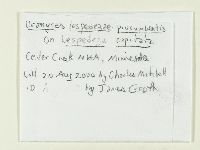 Uromyces lespedezae procumbentis
on Lespedeza capitata
Cedar Creek NHA, Minnesota
Coll 20 Aug 2000 by Charles Mitchell
ID " by James Groth